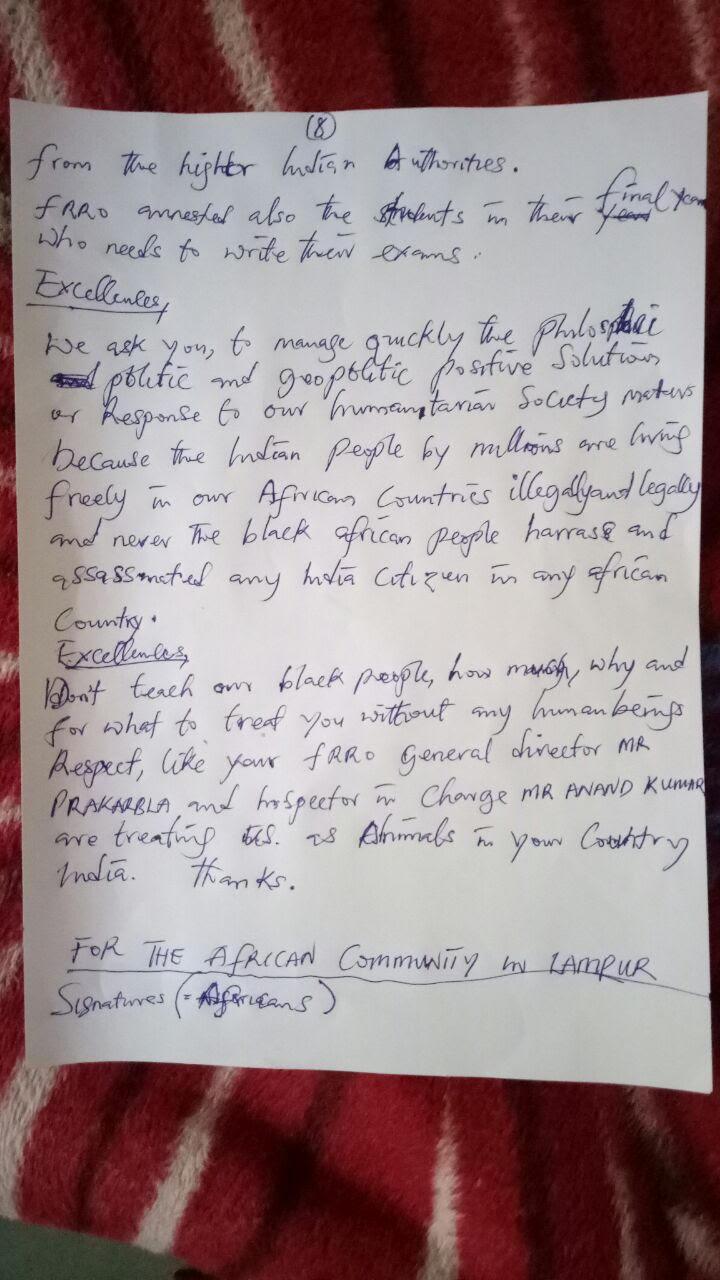 (8)
from the highter Indian Authorities.
FRRO arrested also the students in their final year
who needs to write their exams.
Excellences,
We ask you, to manage quickly the
politic and geopolitic positive Solutions
or Response to our humanitarian Society maters
because the Indian People by millions are living
freely in our African Countries illegally and legally
and never the black african people harrass and
assassinated any India Citizen in any african
Country.
Excellences,
Don't teach our black people, how much, why and
for what to treat you without any human beings
Respect, like your FRRO General director MR
PRAKARBLA and Inspector in Charge MR ANAND KUMAR
are treating us. as Animals in your Country
India. Thanks.
FOR THE AFRICAN COMMUNITY IN LAMPUR
Signatures (= Africans)